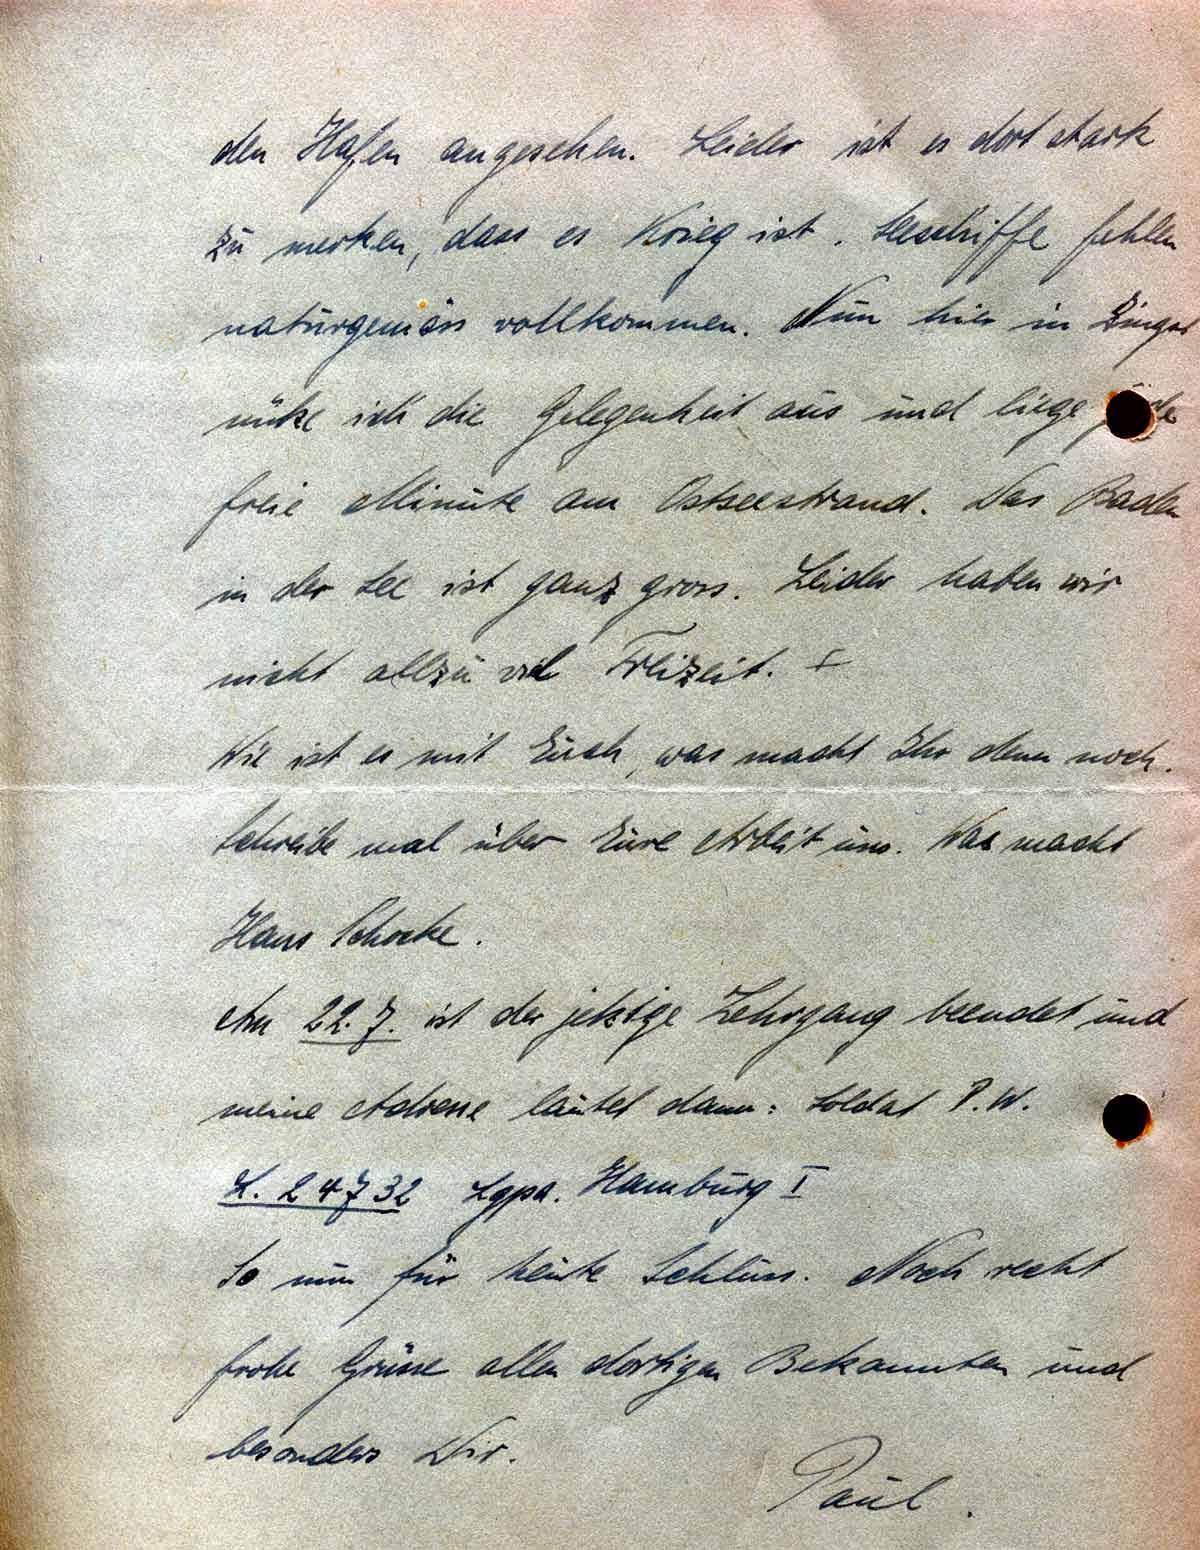 den Hafen angesehen. Leider ist es dort stark
zu merken, dass es Krieg ist. Seeschiffe fehlen
naturgemäss vollkommen. Nun hier in Zingst
nütze ich die Gelegenheit aus und liege jede
freie Minute am Ostseestrand. Das Baden
in der See ist ganz gross. Leider haben wir
nicht allzu viel Freizeit.
Wie ist es mit Euch, was macht Ihr denn noch.
Schreibe mal über Eure Arbeit uns. Was macht
Hans Schocke.
Am 22. 7. ist der jetzige Lehrgang beendet und
meine Adresse lautet dann: Soldat P. W.
L. 24732 Lgpa. Hamburg I
So nun für heute Schluss. Noch recht
frohe Grüsse allen dortigen Bekannten und
besonders Dir.
Paul.